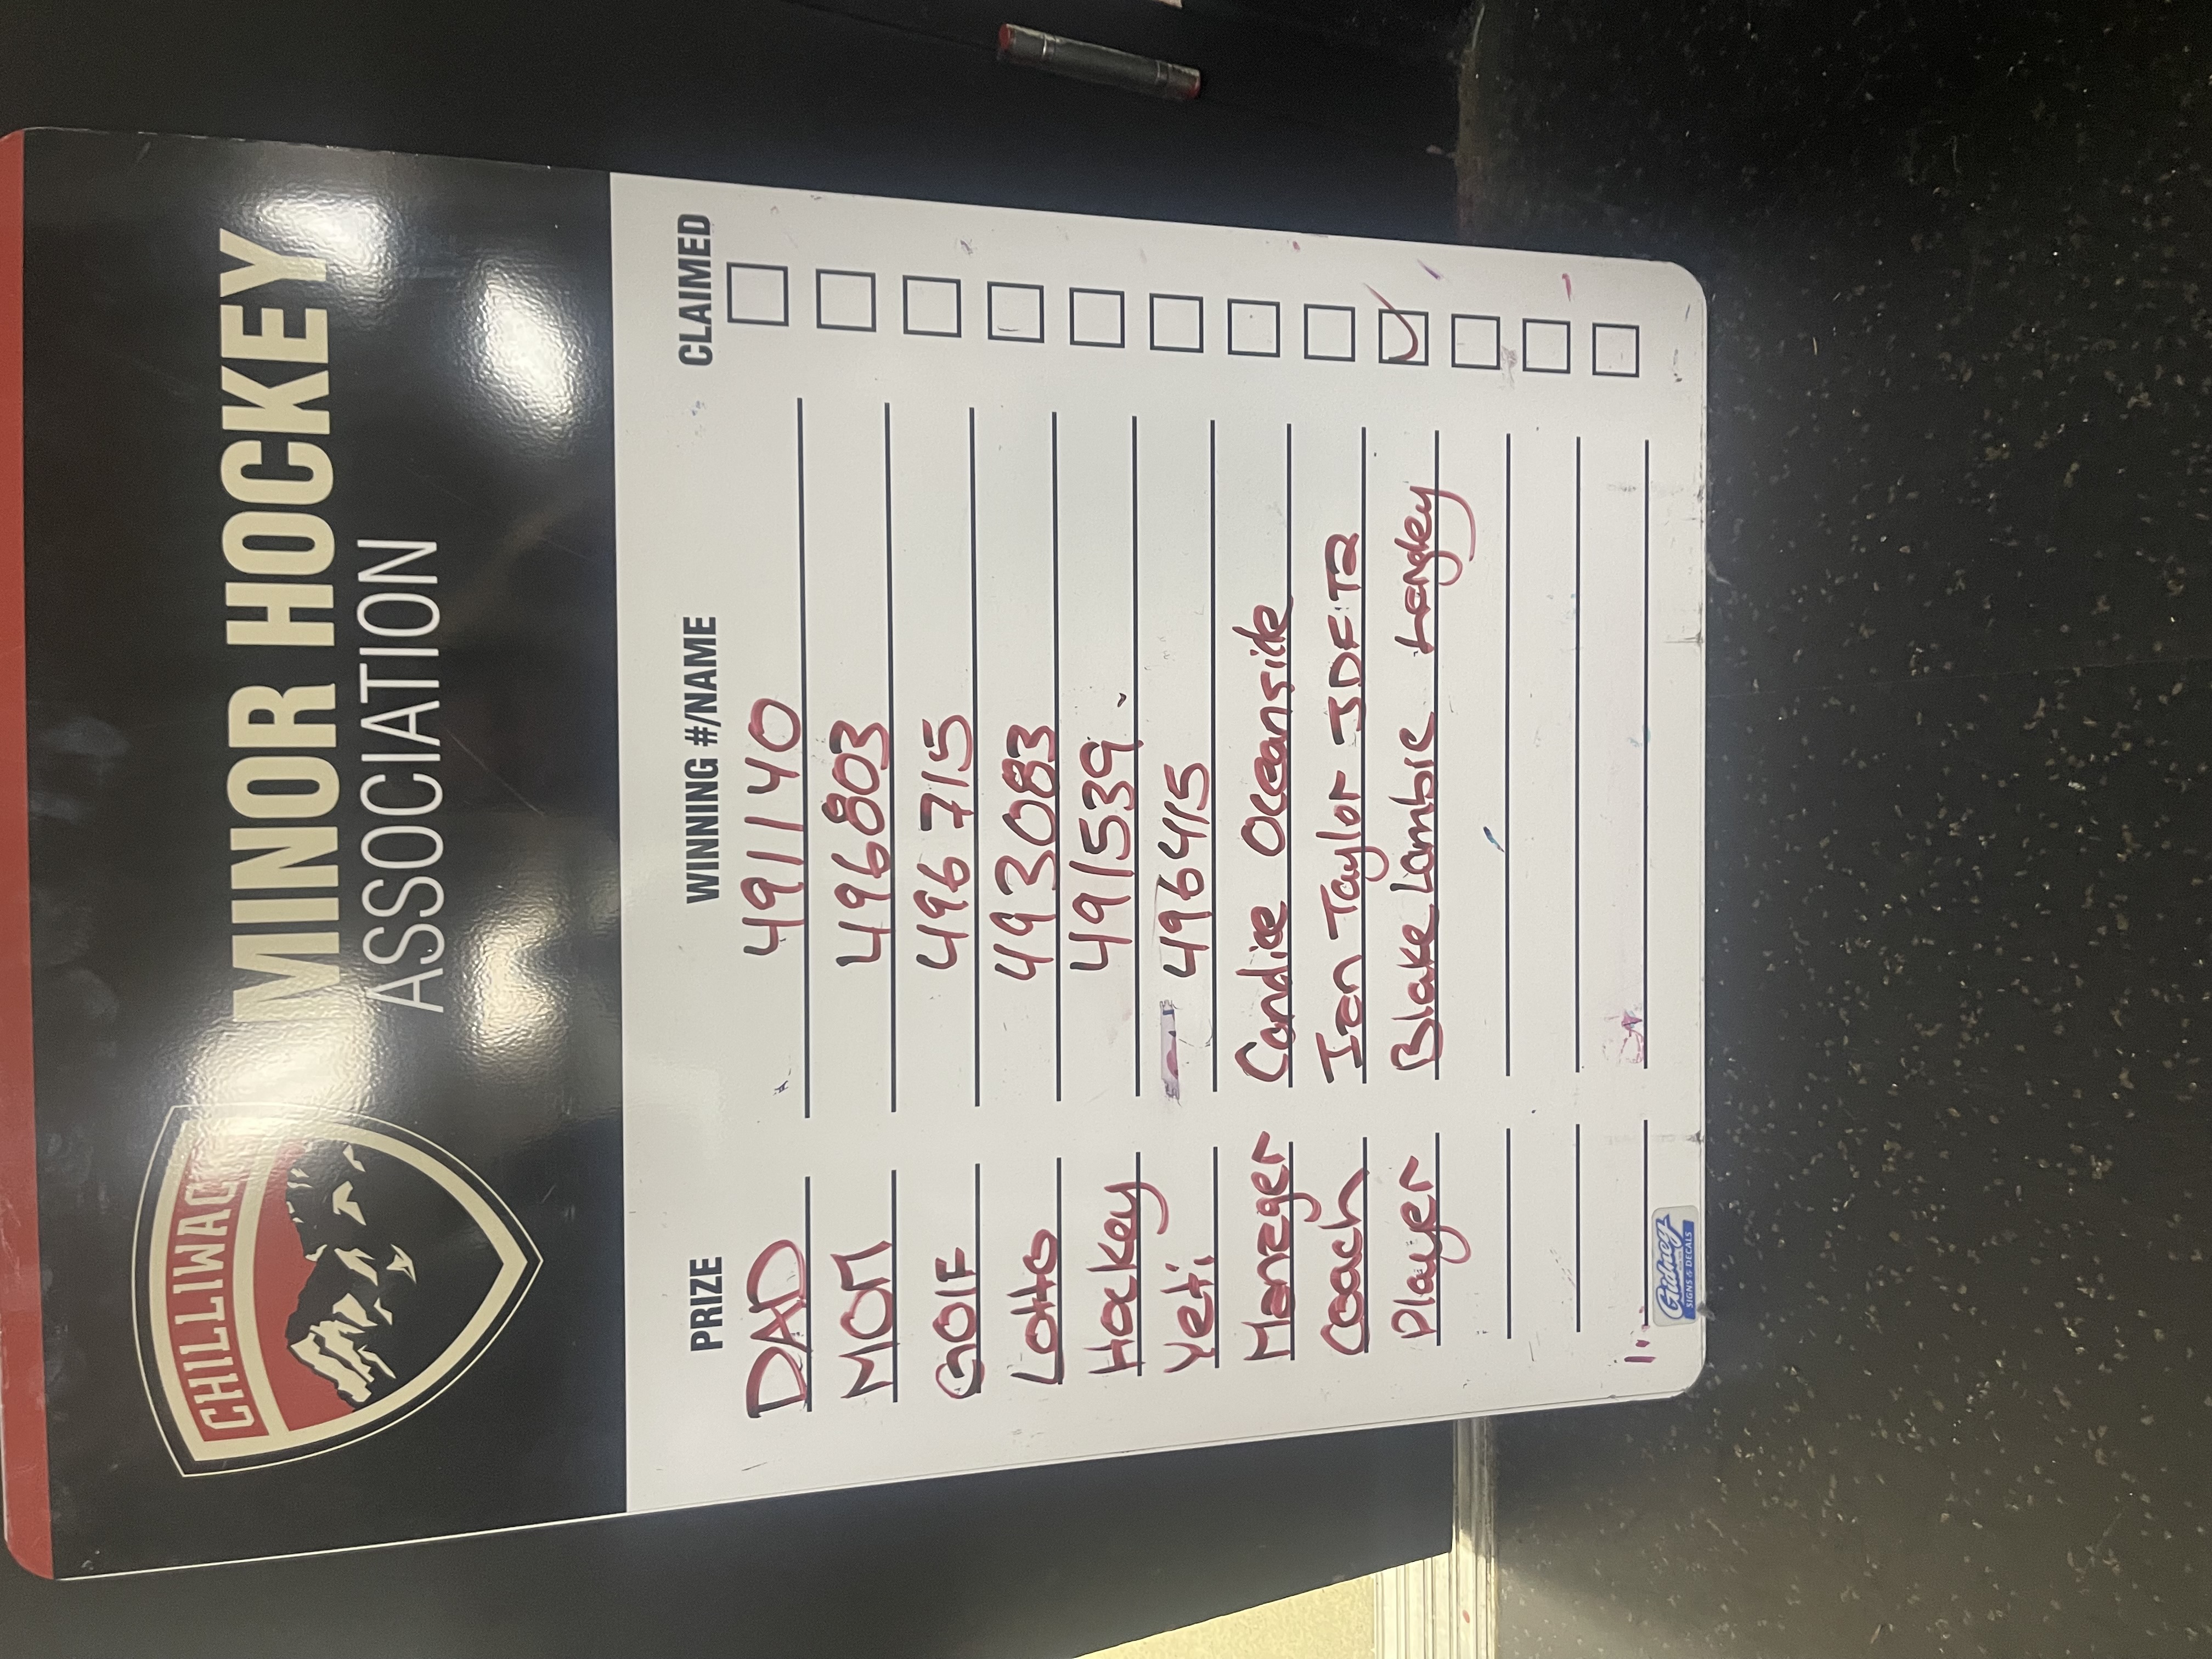 CHILLIWACK
MINOR HOCKEY
ASSOCIATION
PRIZE WINNING #/NAME CLAIMED
DAD 491140
MOM 496803
GOlF 496715
Lotto 493083
Hockey 491539
Yeti 496415
Manager Candice Oceanside
Coach Ian Taylor
Player Blake Lambie Langley
Gidney
SIGNS & DECALS